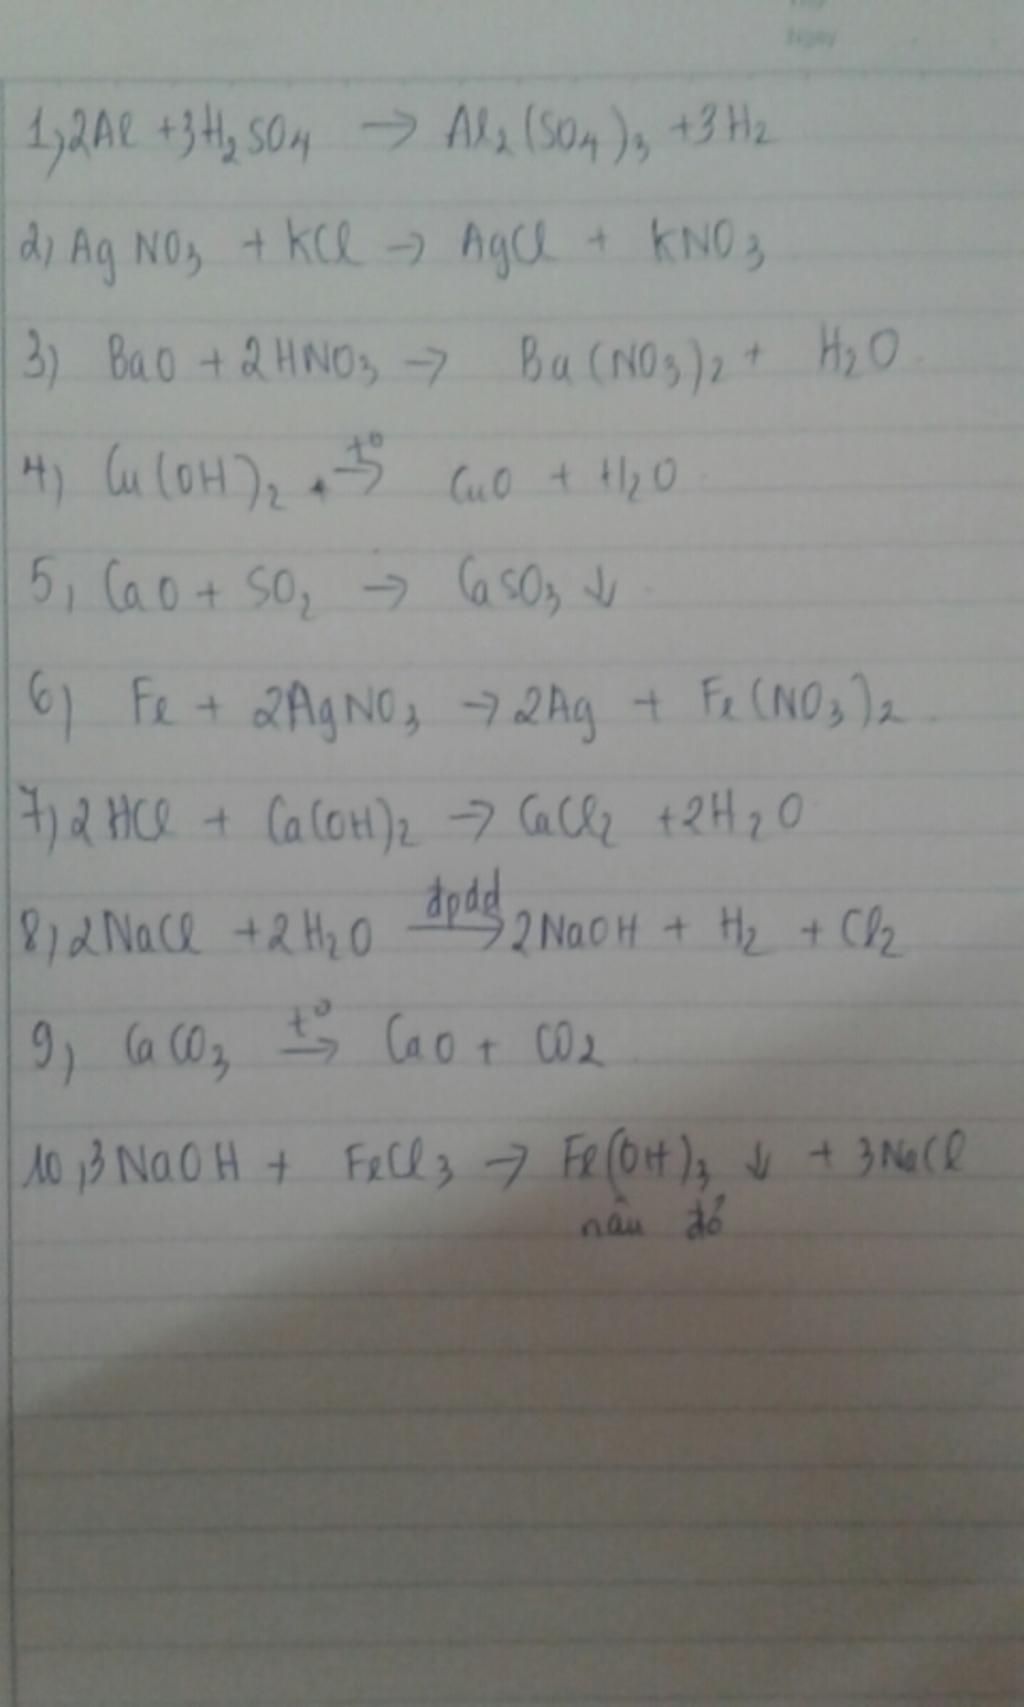 Ngày
1, 2Al + 3H₂SO₄ → Al₂(SO₄)₃ + 3H₂
2, AgNO₃ + KCl → AgCl + KNO₃
3) BaO + 2HNO₃ → Ba(NO₃)₂ + H₂O
4) Cu(OH)₂ t° → CuO + H₂O
5, CaO + SO₂ → CaSO₃ ↓
6) Fe + 2AgNO₃ → 2Ag + Fe(NO₃)₂
7, 2HCl + Ca(OH)₂ → CaCl₂ + 2H₂O
8, 2NaCl + 2H₂O đpdd → 2NaOH + H₂ + Cl₂
9, CaCO₃ t° → CaO + CO₂
10, 3NaOH + FeCl₃ → Fe(OH)₃ ↓ + 3NaCl
nâu đỏ